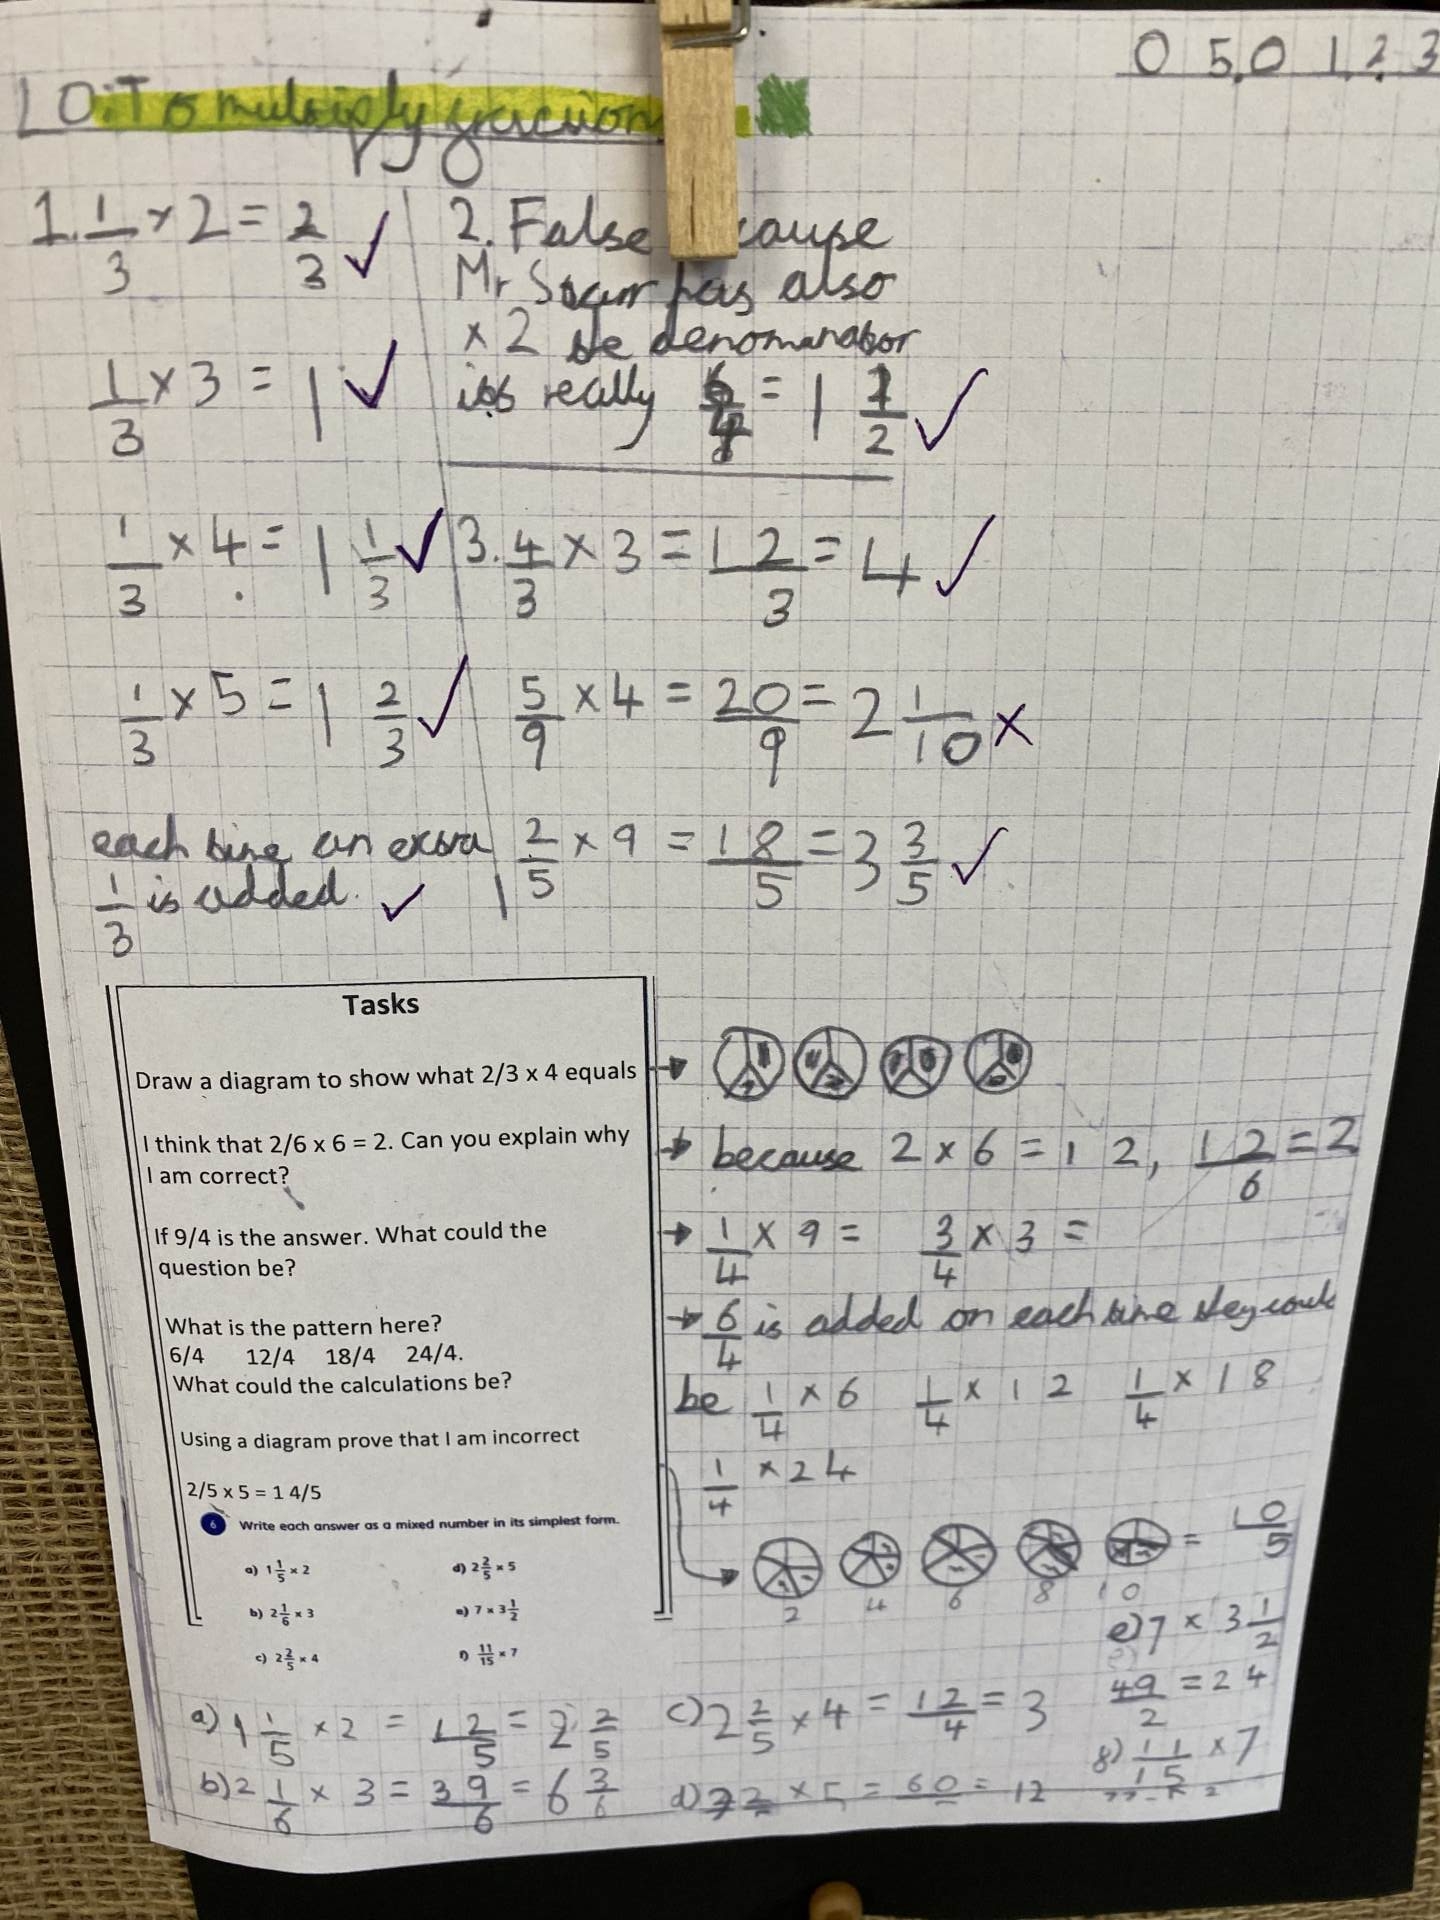 05.01.23
LO: To multiply fraction
1. 1/3 × 2 = 2/3 ✓
1/3 × 3 = 1 ✓
1/3 × 4 = 1 1/3 ✓
1/3 × 5 = 1 2/3 ✓
each time an extra
1/3 is added. ✓
2. False cause
Mr Starr has also
×2 the denomanator
its really = 1 1/2 ✓
3. 4/3 × 3 = 12/3 = 4 ✓
5/9 × 4 = 20/9 = 2 1/10 ×
2/5 × 9 = 18/5 = 3 3/5 ✓
Tasks
Draw a diagram to show what 2/3 x 4 equals
I think that 2/6 x 6 = 2. Can you explain why
I am correct?
If 9/4 is the answer. What could the
question be?
What is the pattern here?
6/4 12/4 18/4 24/4.
What could the calculations be?
Using a diagram prove that I am incorrect
2/5 x 5 = 1 4/5
6 Write each answer as a mixed number in its simplest form.
a) 1 1/5 × 2
d) 2 2/5 × 5
b) 2 1/6 × 3
e) 7 × 3 1/2
c) 2 2/5 × 4
f) 11/15 × 7
→ because 2 × 6 = 12, 12/6 = 2
→ 1/4 × 9 = 3/4 × 3 =
→ 6/4 is added on each time they could
be 1/4 × 6 1/4 × 12 1/4 × 18
1/4 × 24
= 10/5
2 4 6 8 10
a) 1 1/5 × 2 = 12/5 = 2 2/5
b) 2 1/6 × 3 = 39/6 = 6 3/6
c) 2 2/5 × 4 = 12/4 = 3
d) × 5 = 60 = 12
e) 7 × 3 1/2
49/2 = 24
11/15 × 7